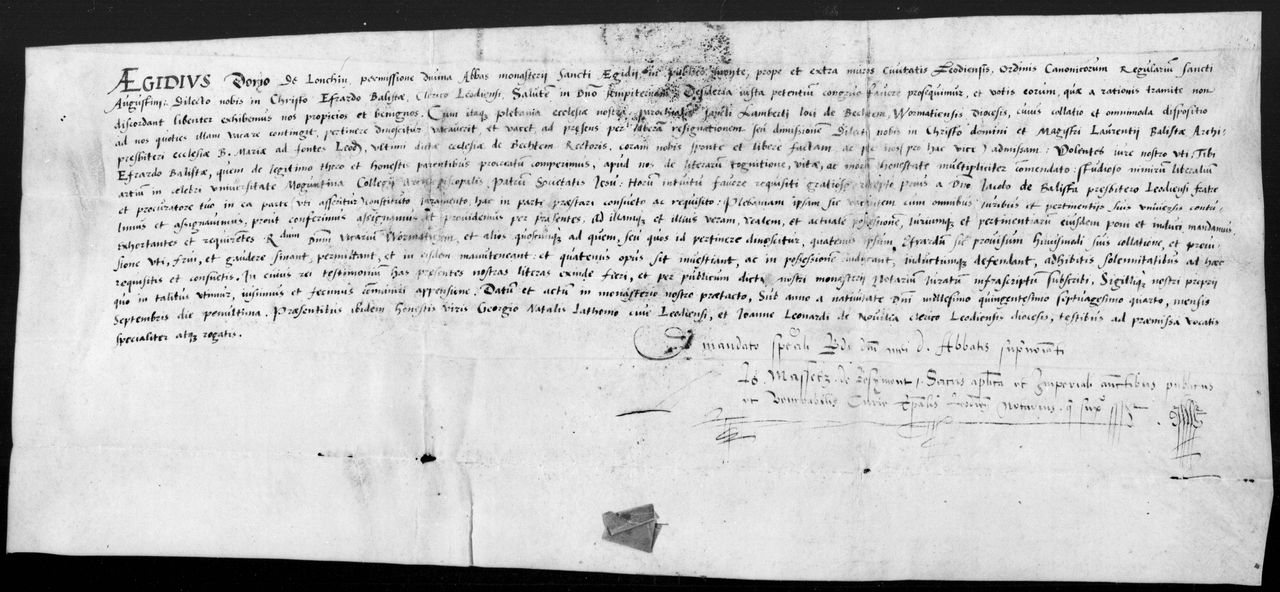 ÆGIDIVS Dorjo de Lonchin, permissione divina Abbas monasterij Sancti Ægidij in publico monte, prope et extra muros civitatis Leodiensis, Ordinis Canonicorum Regularium Sancti
Augustini: Dilecto nobis in Christo Efrardo Balistæ, Clerico Leodiensi, Salutem in Dno sempiternam. Desideria iusta petentium congruo favore prosequimur, et votis eorum, quæ a rationis tramite non
discordant libenter exhibemus nos propicios et benignos. Cum itaq; plebania ecclesiæ nostræ parrochialis Sancti Lamberti loci de Bechtem, Wormatiensis Diocesis, cuius collatio et omnimoda dispositio
ad nos quoties illam vacare contingit, pertinere dinoscitur vacaverit, et vacet ad præsens per liberam resignationem seu dimissionem Dilecti nobis in Christo domini et Magistri Laurentij Balistæ Archi-
presbiteri ecclesiæ B. Mariæ ad fontes Leod, vltimi dictæ ecclesiæ de Bechtem Rectoris, coram nobis sponte et libere factam, ac per nos pro hac vice admissam: Volentes iure nostro vti, Tibi
Efrardo Balistæ, quem de legitimo thoro et honestis parentibus procreatum comperimus, apud nos de literarum cognitione, vitæ, ac morum honestate multipliciter comendato: studioso nimirum liberalium
artium in celebri vniversitate Moguntina Collegij archiepiscopalis Patrum Societatis Jesu: Horum intuitu favere requisiti gratiose, recepto prius a Dno Jacobo de Balista presbitero Leodiensi fratre
et procuratore tuo in ea parte vti asseritur constituto iuramento hac in parte præstari consueto ac requisito: Plebaniam ipsam sic vacantem cum omnibus iuribus et pertinentijs suis vniversis contu-
limus et assignavimus, prout conferimus assignamus et providemus per præsentes, in illamq; et illius veram, realem, et actualem possessionem, iuriumq; et pertinentiarum eiusdem poni et induci mandamus.
Exhortantes et requirentes Rdum Dnm Vicarium Wormatiensem, et alios quoscunq; ad quem, seu quos id pertinere dinoscitur, quatenus ipsum Efrardum sic provisum huiusmodi suis collatione, et provi-
sione vti, frui, et gaudere sinant, permittant, et in eisdem manuteneant: et quatenus opus sit investiant, ac in possessionem inducant, inductumq; defendant, adhibitis solemnitatibus ad hæc
requisitis et consuetis. In cuius rei testimonium has præsentes nostras literas exinde fieri, et per publicum dicti nostri monasterij Notarium iuratum infrascriptum subscribi, Sigilliq; nostri proprij
quo in talibus vtimur, iussimus et fecimus communiri appensione. Datum et actum in monasterio nostro præfacto, Sub anno a nativitate Dni millesimo quingentesimo septuagesimo quarto, mensis
Septembris die penultima. Præsentibus ibidem honestis viris Georgio Natalis Lathomo cive Leodiensi, et Joanne Leonardi de Novilia clerico Leodiensis diocesis, testibus ad præmissa vocatis
specialiter atq; rogatis.
De mandato speciali Rdi Dni mei D. Abbatis suprnoiati
de publicus
et Venerabilis Curie Notarius